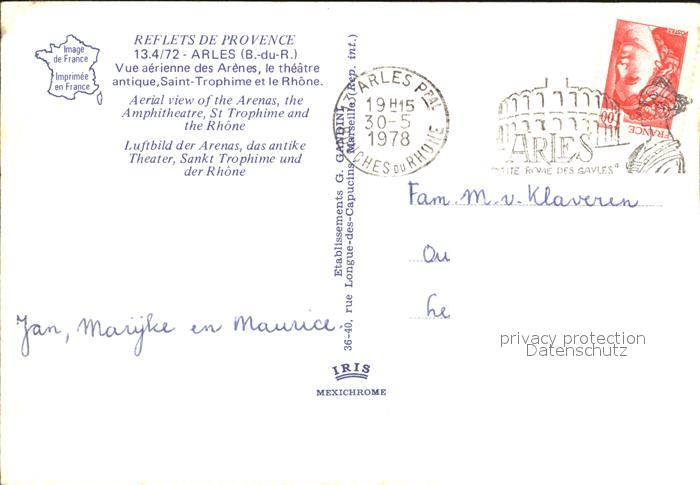 Image
de France
Imprimée
en France
REFLETS DE PROVENCE
13.4/72 - ARLES (B.-du-R.)
Vue aérienne des Arènes, le théâtre
antique, Saint-Trophime et le Rhône.
Aerial view of the Arenas, the
Amphitheatre, St Trophime and
the Rhône
Luftbild der Arenas, das antike
Theater, Sankt Trophime und
der Rhône
Jan, Marijke en Maurice.
Etablissements G. GANDINI
36-40, rue Longue-des-Capucins, Marseille (Rep. int.)
IRIS
MEXICHROME
ARLES PPAL
19H15
30-5
1978
BOUCHES DU RHONE
ARLES
"PETITE ROME DES GAULES"
POSTES
1,00
FRANCE
Fam. M. v. Klaveren
Ou
he
privacy protection
Datenschutz